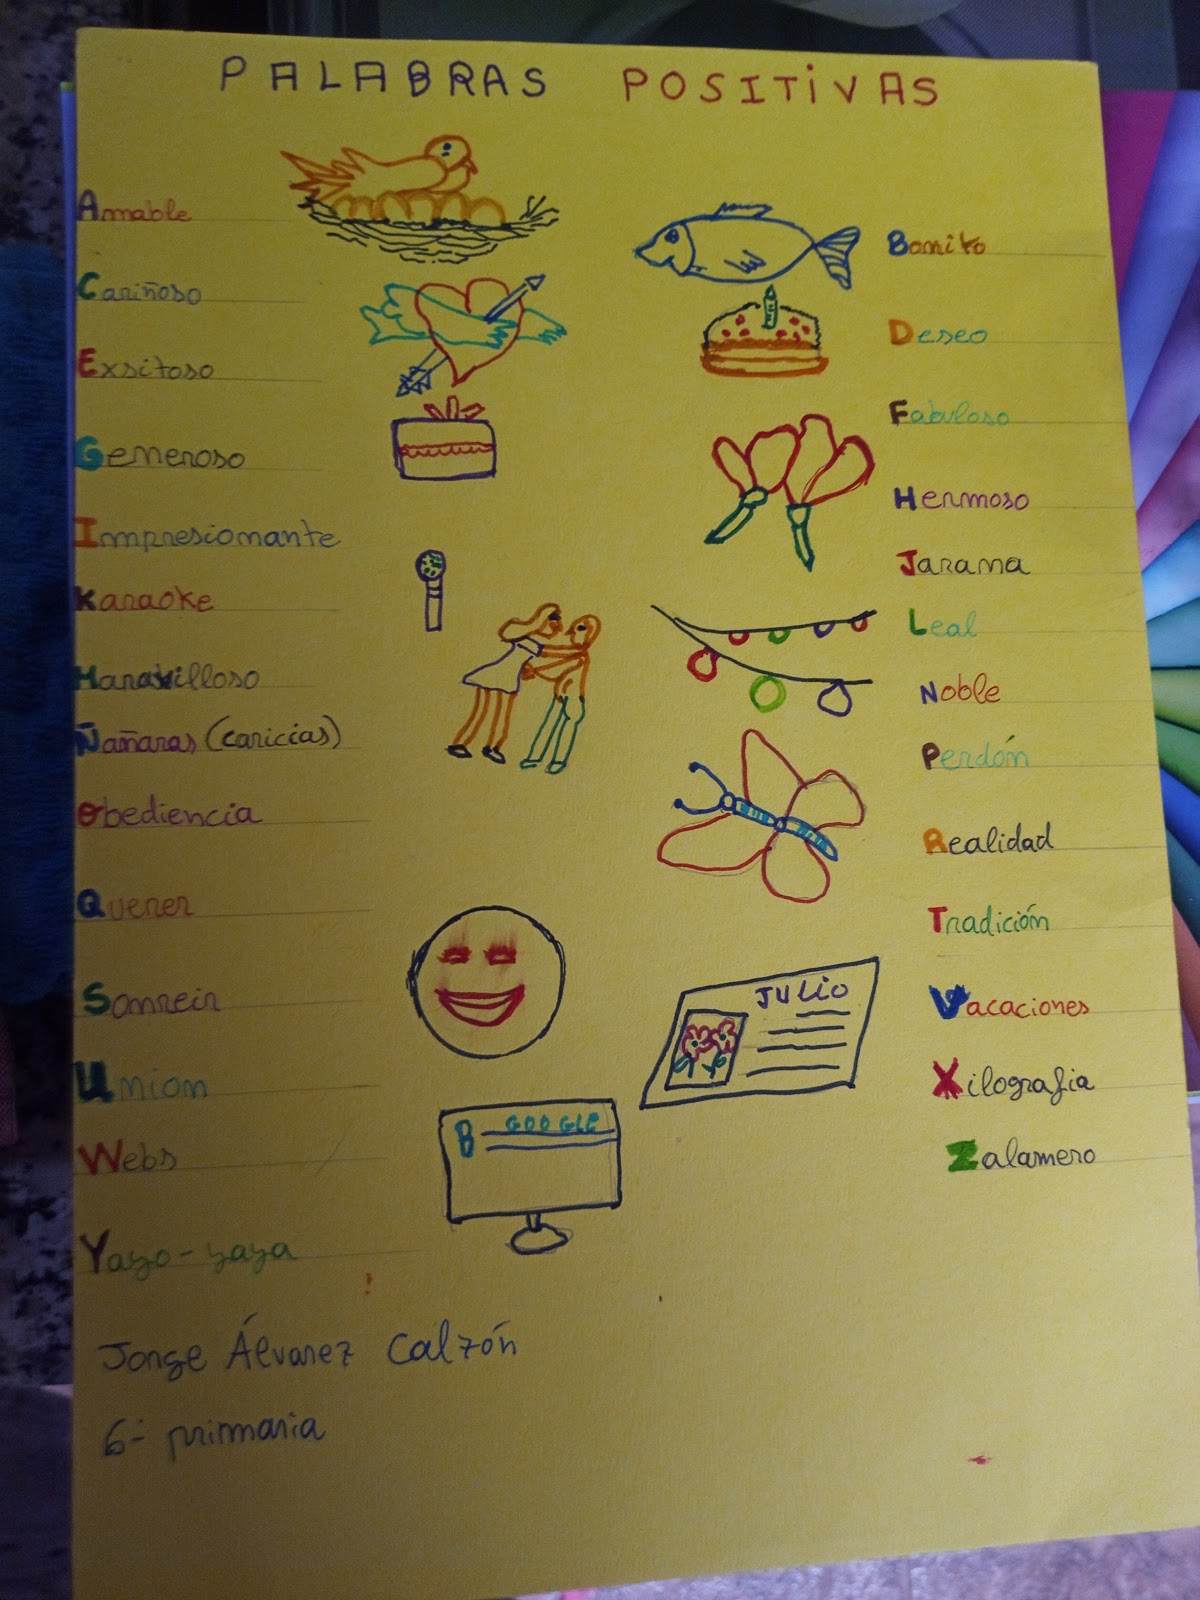 PALABRAS POSITIVAS
Amable
Cariñoso
Exsitoso
Generoso
Impresionante
Karaoke
Maravilloso
Ñañaras (caricias)
Obediencia
Querer
Sonreir
Union
Webs
Yayo-yaya
Bonito
Deseo
Fabuloso
Hermoso
Jarana
Leal
Noble
Perdón
Realidad
Tradición
Vacaciones
Xilografia
Zalamero
JULIO
B GOOGLE
Jorge Álvarez Calzón
6- primaria